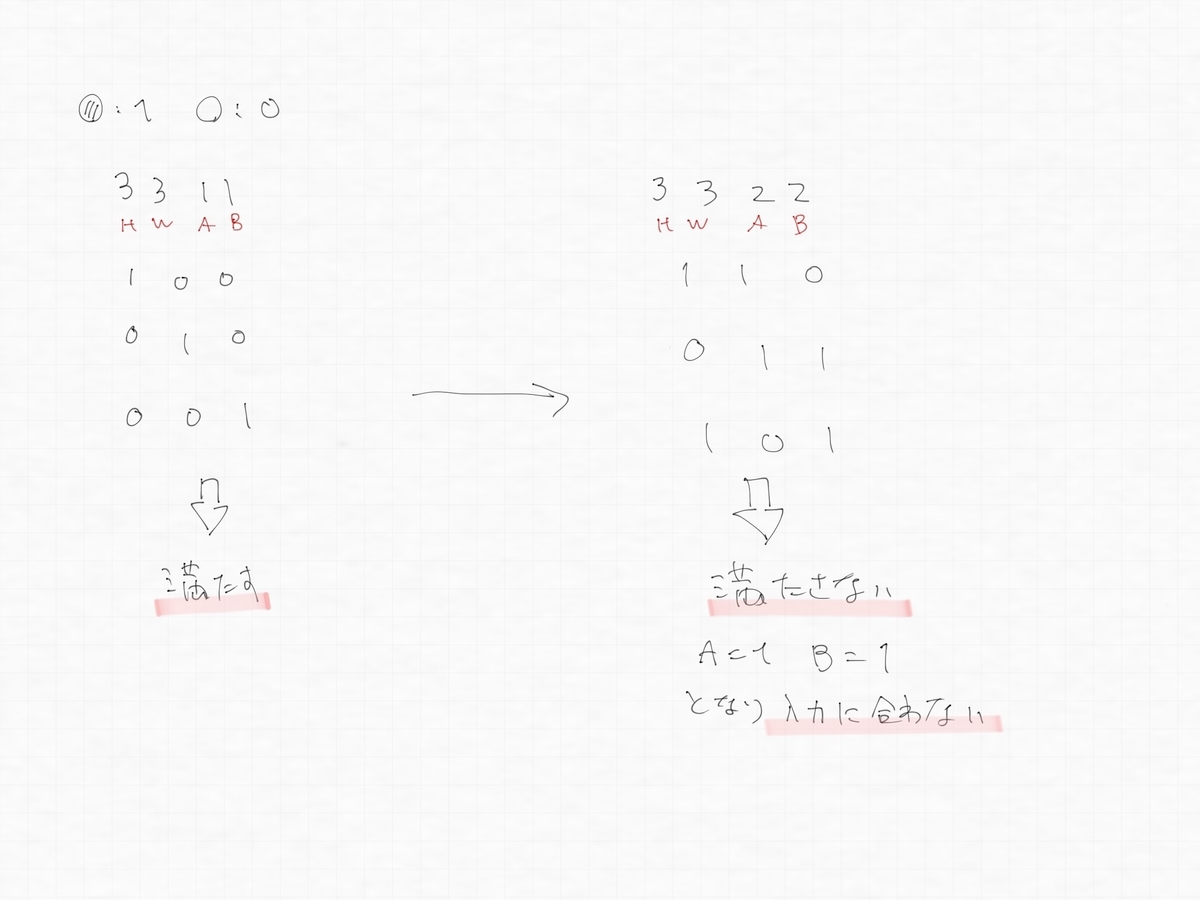 :1 :0
3 3 1 1
H W A B
1 0 0
0 1 0
0 0 1
満たす
3 3 2 2
H W A B
1 1 0
0 1 1
1 0 1
満たさない
A=1 B=1
となり入力に合わない